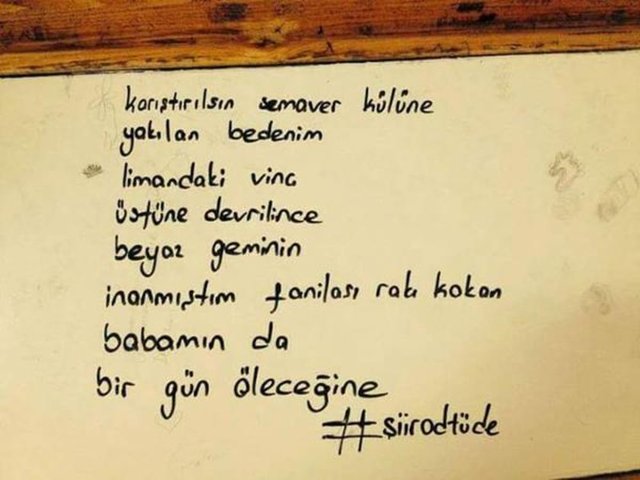 karıştırılsın semaver külüne
yakılan bedenim
limandaki vinc
üstüne devrilince
beyaz geminin
inanmıştım fanilası rakı kokan
babamın da
bir gün öleceğine
#şiirodtüde